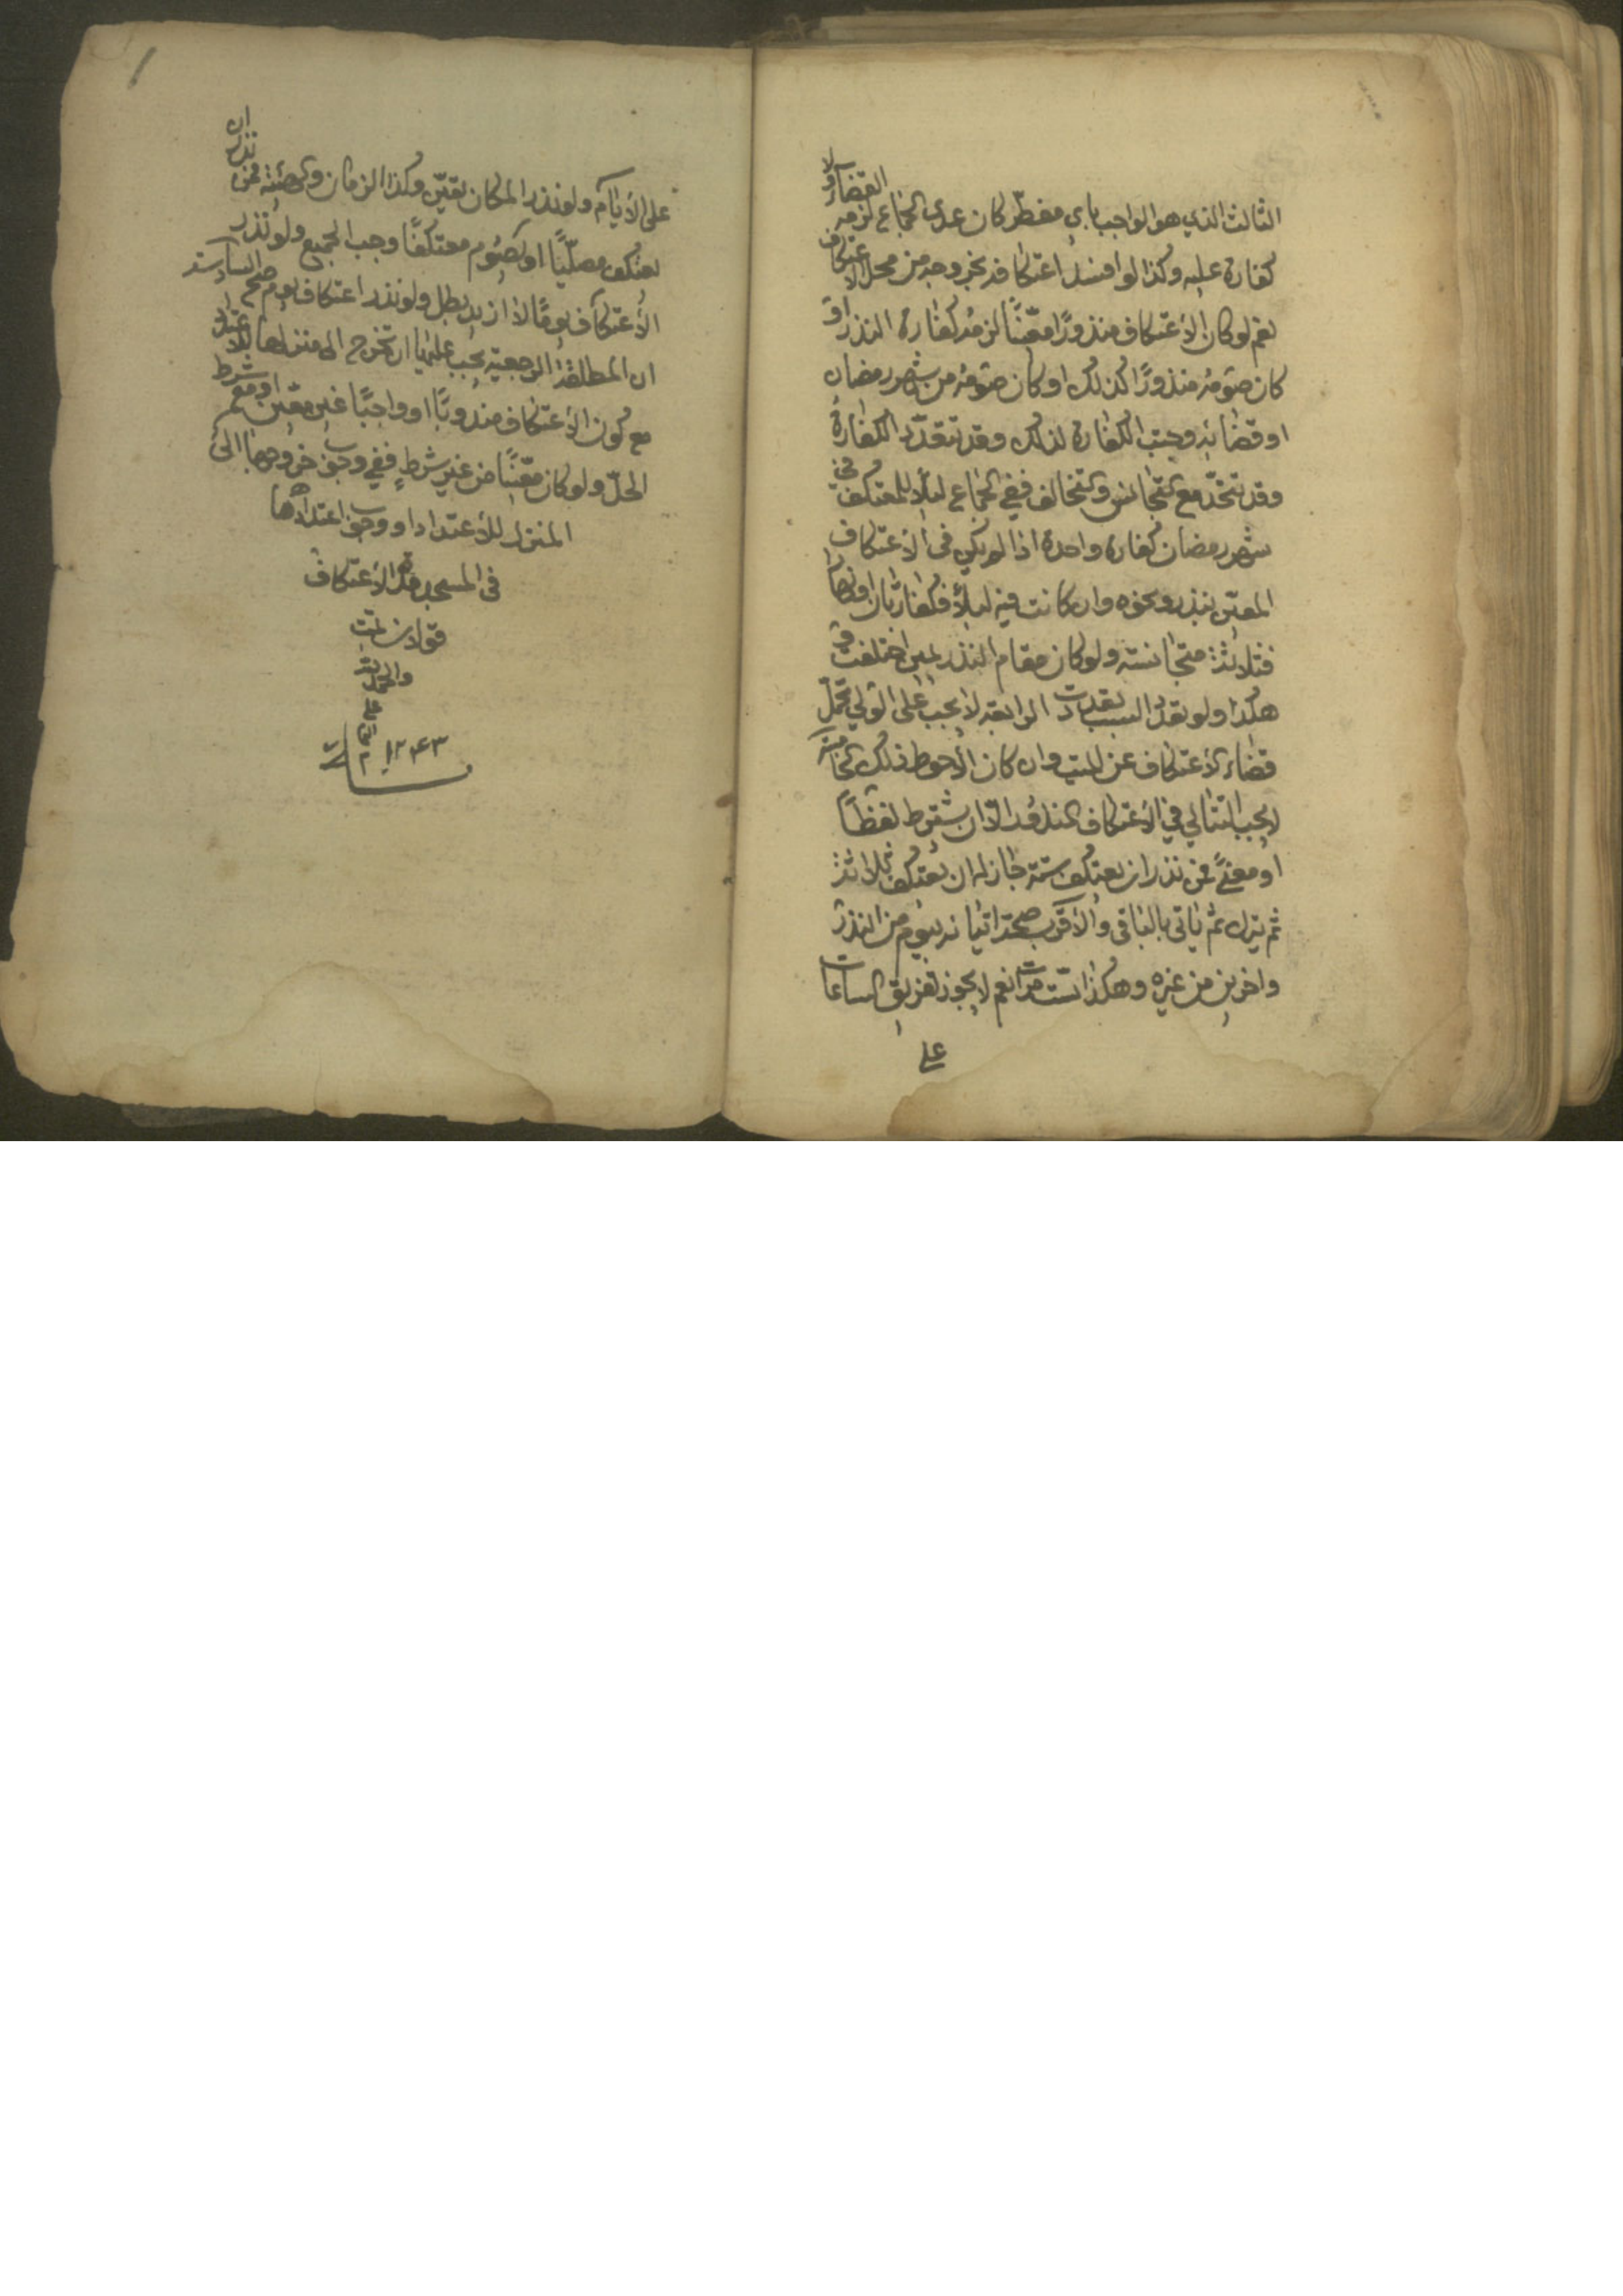 الثالث الذي هو الواجب باي مفطّر كان عدى الجماع لزمه القضاء ولا
كفارة عليه وكذا لو افسد اعتكافه بخروجه من محل الاعتكاف
نعم لو كان الاعتكاف منذورًا معيّنًا لزمه كفارة النذر او
كان صومه منذورًا كذلك او كان صومه من شهر رمضان
او قضائه وجبت الكفارة لذلك وقد تتعدّد الكفارة
وقد تتحد مع التجانس والتخالف ففي الجماع ليلًا للمعتكف في
شهر رمضان كفارة واحدة اذا لم يكن في الاعتكاف
المعيّن بنذر ونحوه وان كانت فيه ليلًا فكفارتان او نهارًا
فثلاثة متجانسة ولو كان مقام النذر يمين اختلفت و
هكذا ولو تعدد السبب تعددت الرابعة لا يجب على الولي تحمّل
قضاء الاعتكاف عن الميت وان كان الاحوط ذلك الخامسة
لا يجب التتالي في الاعتكاف المنذور الّا ان يشترط لفظًا
او معنىً فمن نذر ان يعتكف ستة جاز له ان يعتكف ثلاثة
ثم يترك ثم ياتي بالباقي والاقرب صحة اتيانه بيوم من النذر
واخرين من غيره وهكذا ست مرات نعم لا يجوز تفريق الساعات
على
على الايام ولو نذر المكان تعيّن وكذا الزمان والهيئة فمن نذر ان
يعتكف مصلّيًا او يصوم معتكفًا وجب الجميع ولو نذر
الاعتكاف يومًا لا ازيد بطل ولو نذر اعتكاف يوم صح السادسة
ان المطلقة الرجعية يجب عليها ان تخرج الى منزلها للاعتداد
مع كون الاعتكاف مندوبًا او واجبًا غير معيّن او مع شرط
الحلّ ولو كان معيّنًا من غير شرط ففي وجوب خروجها الى
المنزل للاعتداد او وجوب اعتدادها
في المسجد مدّة الاعتكاف
قولان تمت
والحمد لله
على
١٢٤٣